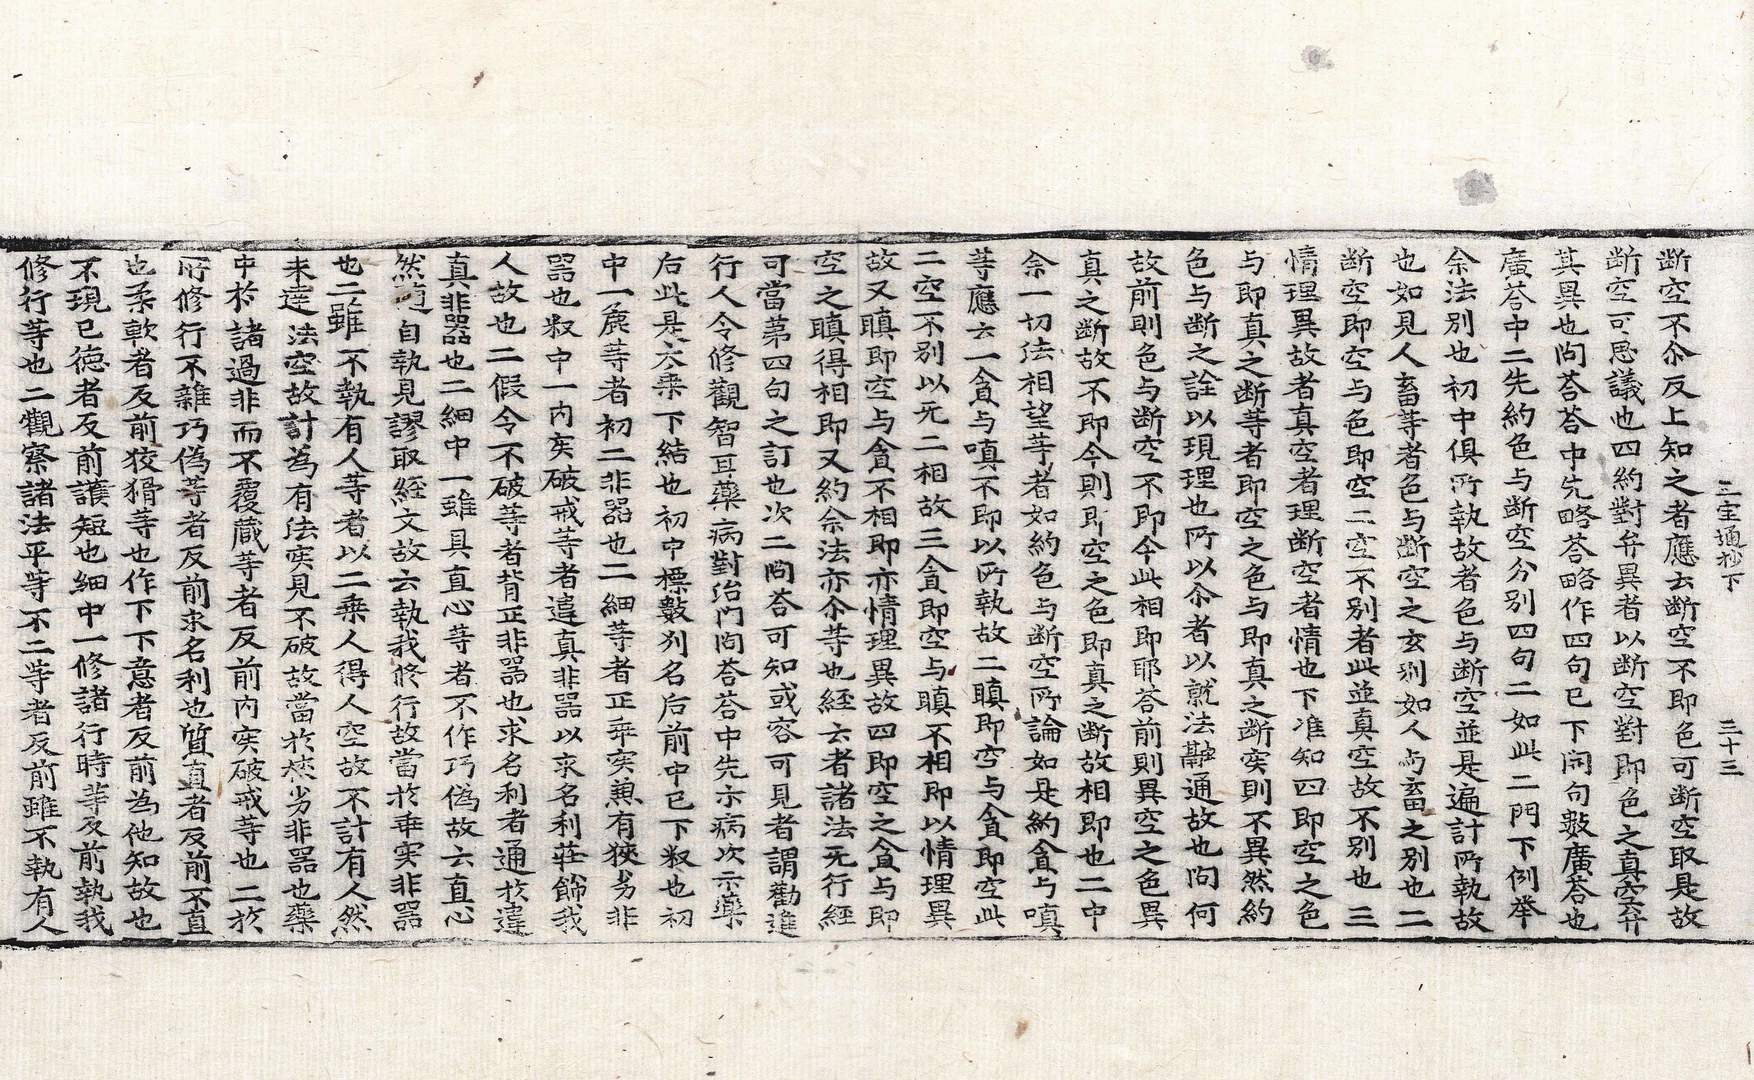 三宝通抄下 三十三
断空不尒反上知之者應云断空不即色可断空取是故
断空可思議也四約對弁異者以断空對即色之真空弁
其異也問荅荅中先略荅略作四句已下開句數廣荅也
廣荅中二先約色与断空分別四句二如此二門下例举
余法別也初中俱所執故者色与断空並是遍計所執故
也如見人畜等者色与断空之玄別如人与畜之別也二
断空即空与色即空二空不別者此並真空故不別也三
情理異故者真空者理断空者情也下准知四即空之色
与即真之断等者即空之色与即真之断実則不異然約
色与断之詮以現理也所以尒者以就法融通故也問何
故前則色与断空不即今此相即耶荅前則異空之色異
真之断故不即今則即空之色即真之断故相即也二中
余一切法相望等者如約色与断空所論如是約貪与嗔
等應云一貪与嗔不即以所執故二瞋即空与貪即空此
二空不別以无二相故三貪即空与瞋不相即以情理異
故又瞋即空与貪不相即亦情理異故四即空之貪与即
空之瞋得相即又約余法亦尒等也経云者諸法无行経
可當第四句之訂也次二問荅可知或容可見者謂勸進
行人令修觀智耳藥病對治門問荅荅中先亦病次示藥
后此是大乘下結也初中標數列名后前中已下釈也初
中一麁等者初二非器也二細等者正乖実兼有狹劣非
器也釈中一內実破戒等者違真非器以求名利莊飾我
人故也二假令不破等者背正非器也求名利者通於違
真非器也二細中一雖具直心等者不作巧偽故云直心
然 自執見謬取経文故云執我修行故當於乖実非器
也二雖不執有人等者以二乘人得人空故不計有人然
未達法空故計為有法実見不破故當於狹劣非器也藥
中於諸過非而不覆蔵等者反前內実破戒等也二於
所修行不雜巧偽等者反前求名利也質直者反前不直
也柔軟者反前狡猾等也作下下意者反前為他知故也
不現已德者反前護短也細中一修諸行時等反前執我
修行等也二觀察諸法平等不二等者反前雖不執有人